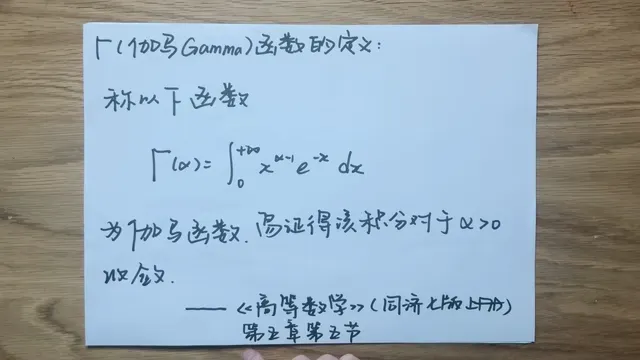 Γ(伽马Gamma)函数的定义:
称以下函数
Γ(α)=∫₀^{+∞} x^{α-1} e^{-x} dx
为伽马函数. 易证得该积分对于α>0
收敛.
——《高等数学》(同济七版上册)
第五章第五节